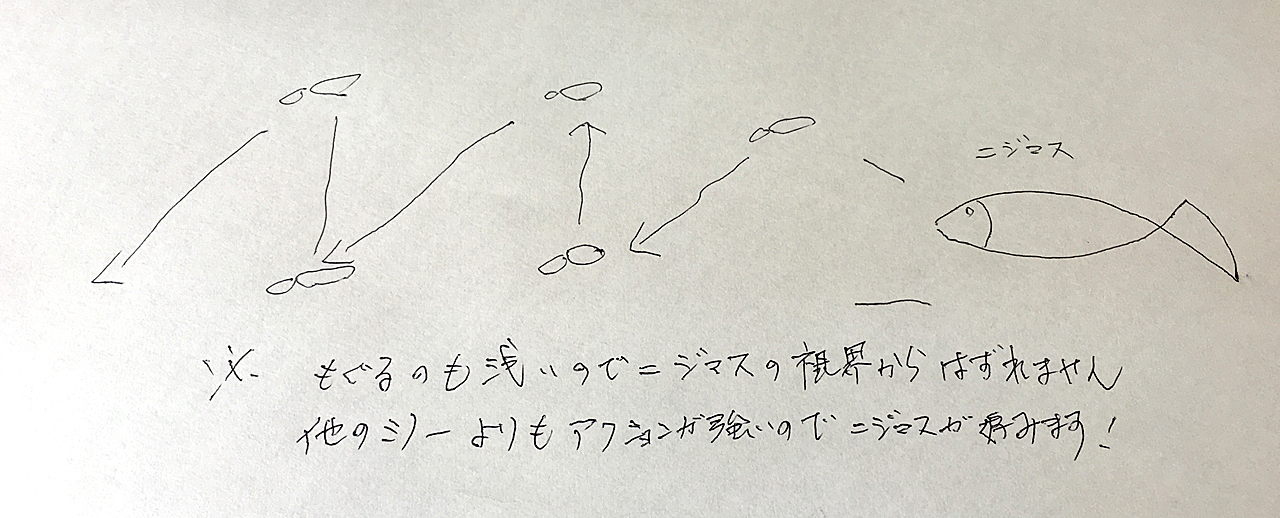 ニジマス
※ もぐるのも浅いのでニジマスの視界からはずれません
他のミノーよりもアクションが強いのでニジマスが好みます!